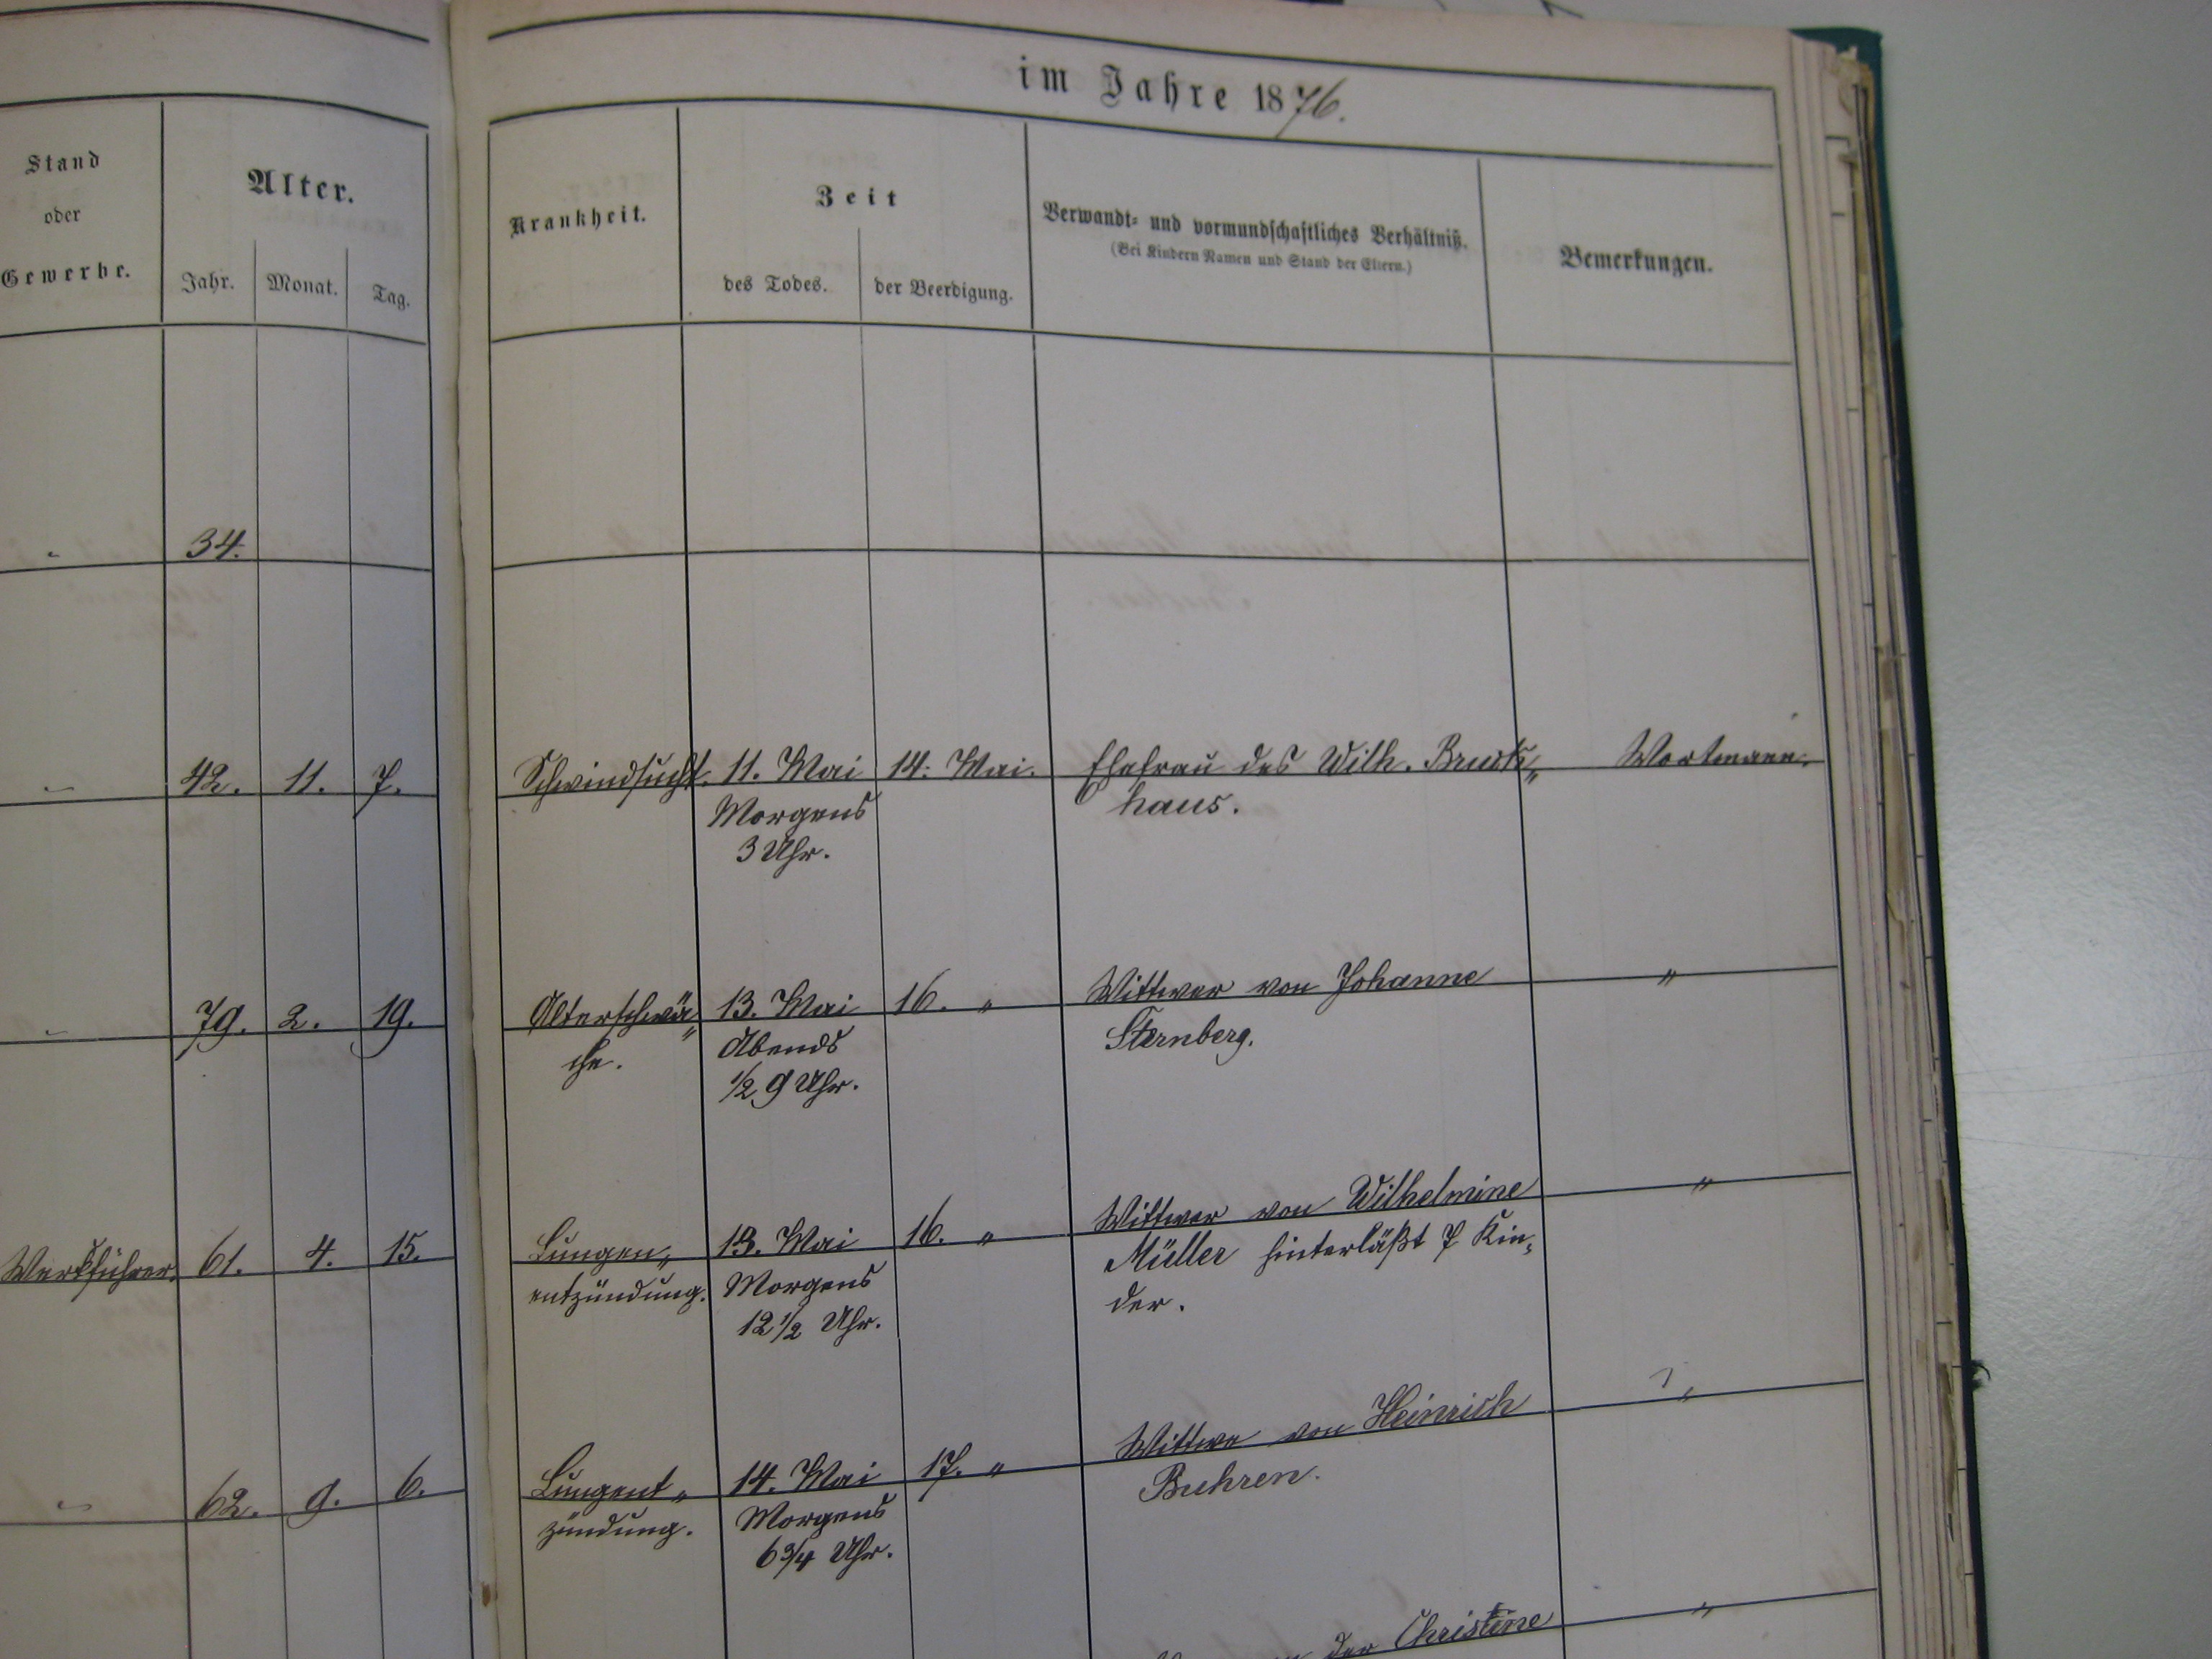 im Jahre 1876.
Stand
oder
Gewerbe.
Alter.
Jahr. Monat. Tag.
Krankheit.
Zeit
des Todes. der Beerdigung.
Verwandt- und vormundschaftliches Verhältniß.
(Bei Kindern Namen und Stand der Eltern.)
Bemerkungen.
" 34.
" 42. 11. 7. Schwindsucht. 11. Mai 14. Mai. Ehefrau des Wilh. Bruck„ Wortmann.
Morgens haus.
3 Uhr.
" 79. 2. 19. Altersschwä„ 13. Mai 16. " Wittwer von Johanne "
che. Abends Sternberg.
1/2 9 Uhr.
Werkführer. 61. 4. 15. Lungen„ 13. Mai 16. " Wittwer von Wilhelmine "
entzündung. Morgens Müller hinterläßt 7 Kin„
12 1/2 Uhr. der.
" 62. 9. 6. Lungent„ 14. Mai 17. " Wittwe von Heinrich "
zündung. Morgens Buhren.
6 3/4 Uhr.
der Christine "